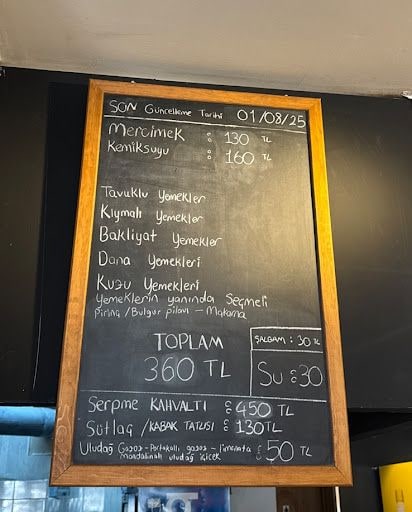 SON Güncelleme Tarihi 01/08/25
Mercimek : 130 TL
Kemiksuyu : 160 TL
Tavuklu Yemekler
Kıymalı Yemekler
Bakliyat Yemekler
Dana Yemekleri
Kuzu Yemekleri
Yemeklerin yanında Seçmeli
Pirinç / Bulgur pilavı - Makarna
TOPLAM
360 TL
ŞALGAM : 30 TL
Su : 30
Serpme KAHVALTI : 450 TL
Sütlaç / KABAK TATLISI : 130 TL
Uludağ Gazoz - Portakallı gazoz - limonata : 50 TL
Mandalinalı uludağ içicek